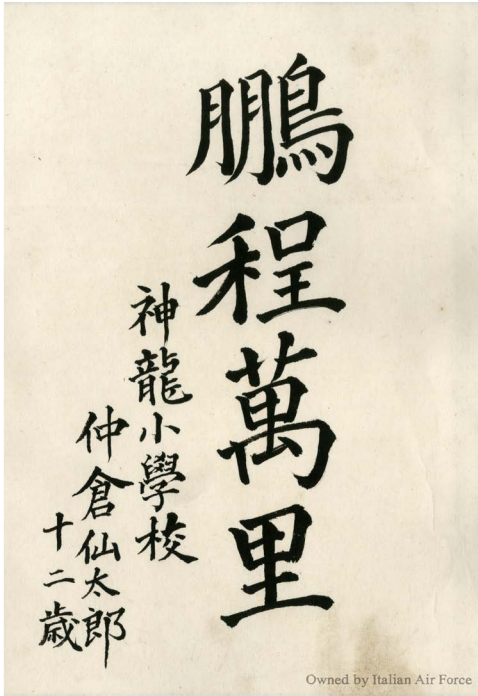 鵬程萬里
神龍小學校
仲倉仙太郎
十二歳
Owned by Italian Air Force